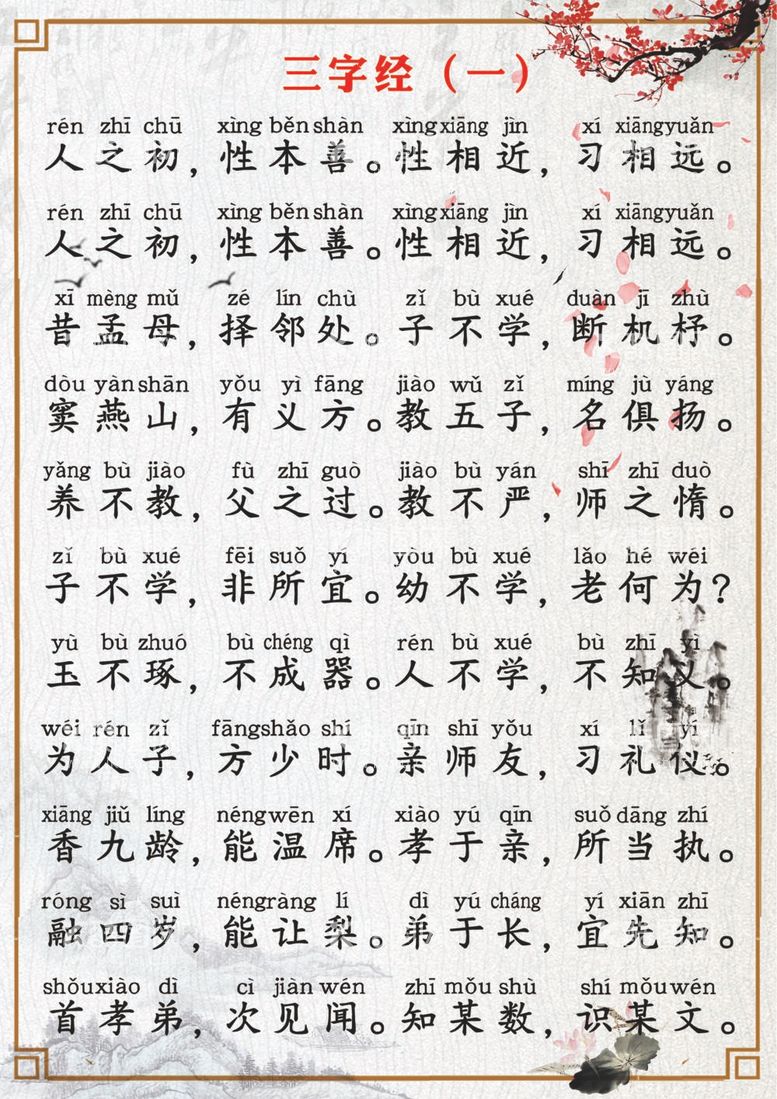 三字经（一）
rén zhī chū xìng běn shàn xìng xiāng jìn xí xiāng yuǎn
人之初，性本善。性相近，习相远。
rén zhī chū xìng běn shàn xìng xiāng jìn xí xiāng yuǎn
人之初，性本善。性相近，习相远。
xī mèng mǔ zé lín chù zǐ bù xué duàn jī zhù
昔孟母，择邻处。子不学，断机杼。
dòu yàn shān yǒu yì fāng jiào wǔ zǐ míng jù yáng
窦燕山，有义方。教五子，名俱扬。
yǎng bù jiào fù zhī guò jiào bù yán shī zhī duò
养不教，父之过。教不严，师之惰。
zǐ bù xué fēi suǒ yí yòu bù xué lǎo hé wéi
子不学，非所宜。幼不学，老何为？
yù bù zhuó bù chéng qì rén bù xué bù zhī yì
玉不琢，不成器。人不学，不知义。
wéi rén zǐ fāng shǎo shí qīn shī yǒu xí lǐ yí
为人子，方少时。亲师友，习礼仪。
xiāng jiǔ líng néng wēn xí xiào yú qīn suǒ dāng zhí
香九龄，能温席。孝于亲，所当执。
róng sì suì néng ràng lí dì yú cháng yí xiān zhī
融四岁，能让梨。弟于长，宜先知。
shǒu xiào dì cì jiàn wén zhī mǒu shù shí mǒu wén
首孝弟，次见闻。知某数，识某文。